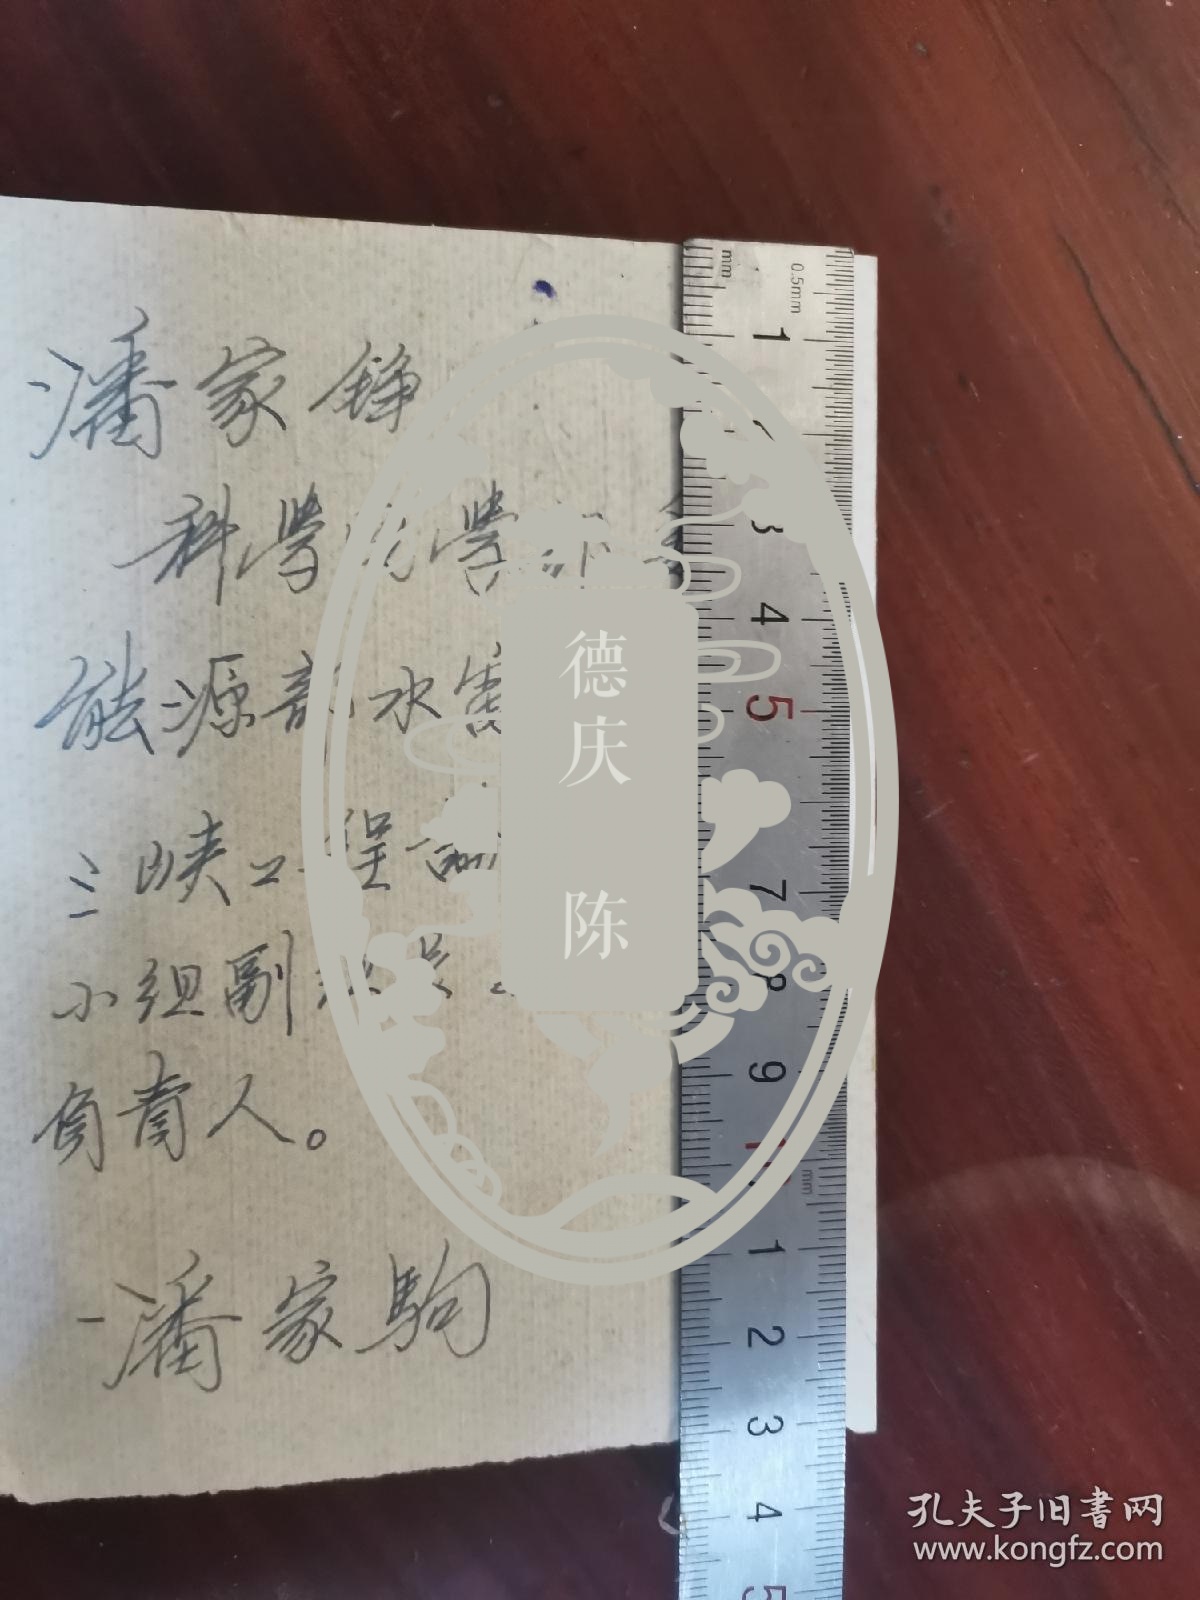 潘家铮
科学院学部
能源部水
三峡工程
小组副组长
负责人。
潘家驹
德庆
陈
mm
0.5mm
1
3
4
5
7
8
9
mm
1
2
3
4
5
孔夫子旧書网
www.kongfz.com